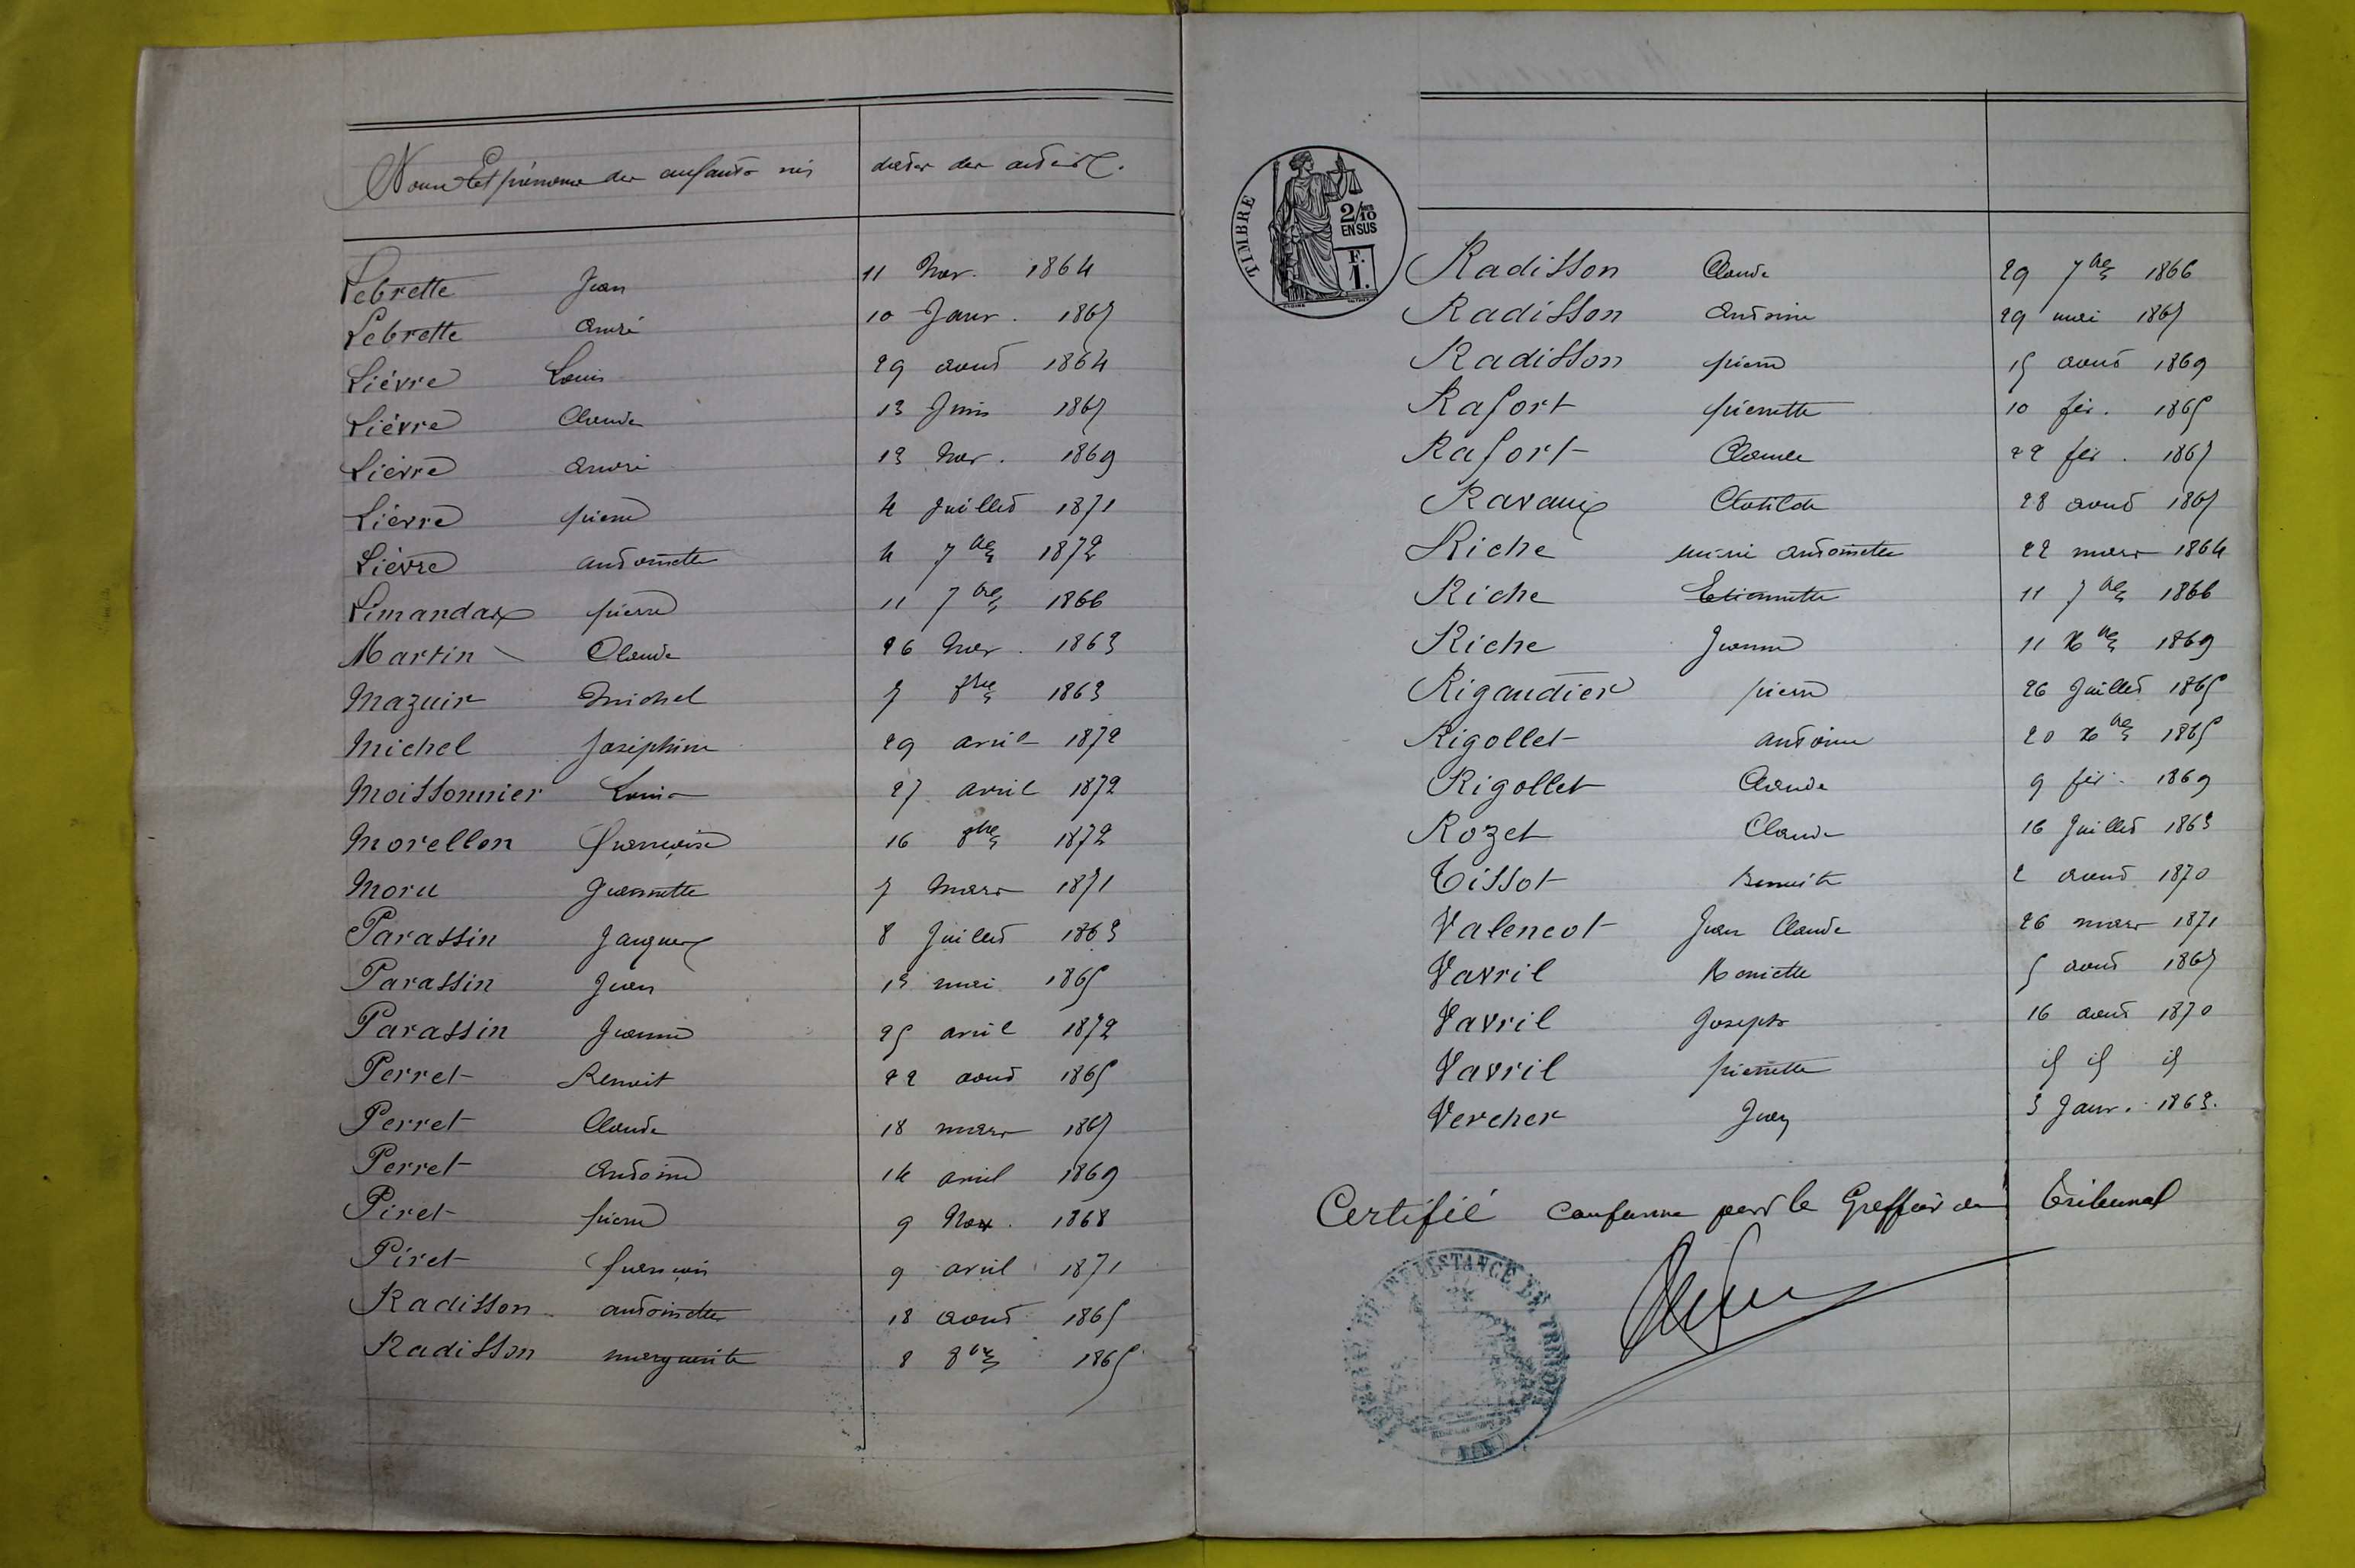 Noms et prénoms des enfants nés dates des actes.
Lebrette Jean 11 Nov. 1864
Lebrette André 10 Janv. 1867
Lièvre Louis 29 aout 1864
Lièvre Claude 13 Juin 1867
Lièvre André 13 Nov. 1869
Lièvre pierre 4 Juillet 1871
Lièvre antoinette 4 7bre 1872
Limandas pierre 11 7bre 1866
Martin Claude 26 Nov. 1863
Mazuir Michel 7 8bre 1863
Michel Joséphine 29 avril 1872
Moissonnier Louis 27 avril 1872
Morellon françoise 16 8bre 1872
Moru Jeannette 7 Mars 1871
Parassin Jacques 8 Juillet 1863
Parassin Jean 13 mai 1865
Parassin Jeanne 25 avril 1872
Perret Benoit 22 aout 1865
Perret Claude 18 mars 1867
Perret Antoine 14 avril 1869
Piret pierre 9 Nov. 1868
Piret françois 9 avril 1871
Radisson antoinette 18 aout 1865
Radisson marguerite 8 8bre 1865
TIMBRE
2/10
EN SUS
F.
1.
Radisson Claude 29 7bre 1866
Radisson Antoine 29 mai 1867
Radisson pierre 15 aout 1869
Rafort pierrette 10 fév. 1865
Rafort Claude 22 fév. 1867
Ravaux Clotilde 28 aout 1867
Riche marie antoinette 22 mars 1864
Riche Etiennette 11 7bre 1866
Riche Jeanne 11 Xbre 1869
Rigaudier pierre 26 Juillet 1865
Rigollet antoine 20 Xbre 1865
Rigollet Claude 9 fév. 1869
Rozet Claude 16 Juillet 1863
Tissot Benoite 2 aout 1870
Valencot Jean Claude 26 mars 1871
Vavril Mariette 5 aout 1867
Vavril Joseph 16 aout 1870
Vavril pierrette id id id
Vercher Jean 3 Janv. 1863.
Certifié conforme par le Greffier du Tribunal
TRIBUNAL DE 1ère INSTANCE DE TREVOUX
(AIN)